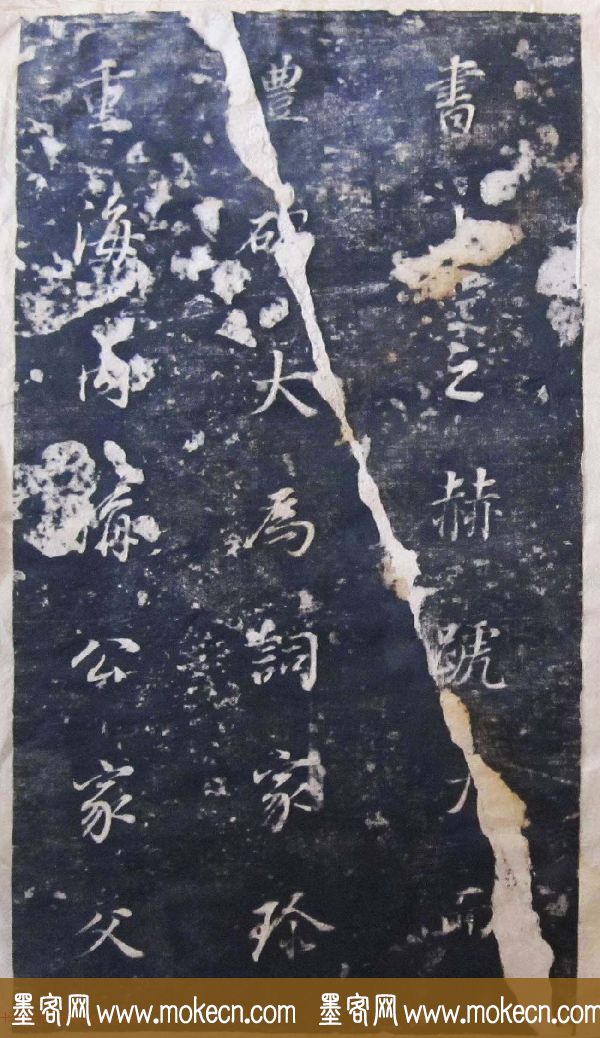 書之赫蹏
豊碑大為詞家珍
重海内公家父
墨客网 www.mokecn.com 墨客网 www.mokecn.com